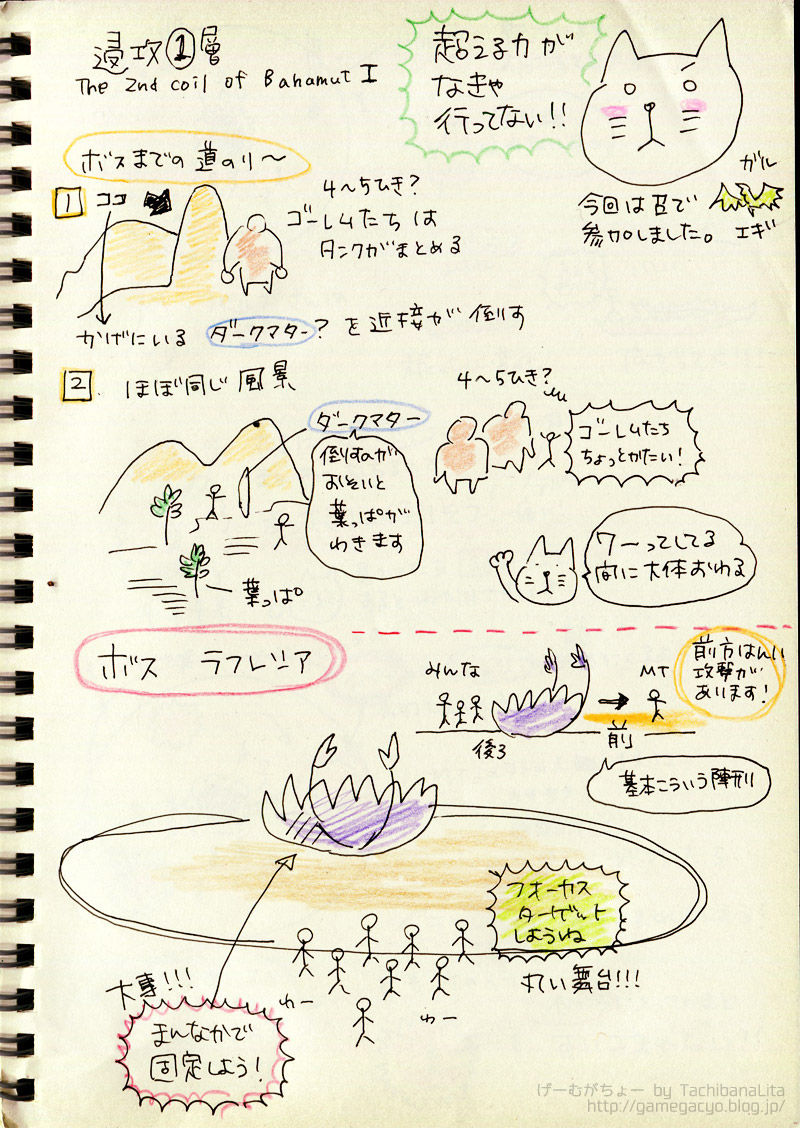 侵攻①層
The 2nd coil of Bahamut I
超える力が
なきゃ
行ってない!!
ガル
エギ
今回は召で
参加しました。
ボスまでの道のり～
1
ココ
4～5ひき?
ゴーレムたちは
タンクがまとめる
かげにいる ダークマター? を近接が倒す
2. ほぼ同じ風景
4～5ひき?
ダークマター
ゴーレムたち
ちょっとかたい!
倒すのが
おそいと
葉っぱが
わきます
葉っぱ
ワーってしてる
間に大体おわる
ボス ラフレシア
みんな
後ろ
前
MT
前方はんい
攻撃が
あります!
基本こういう陣形
フォーカス
ターゲット
しようね
丸い舞台!!!
わー
わー
大事!!!
まんなかで
固定しよう!
げーむがちょー by TachibanaLita
http://gamegacyo.blog.jp/